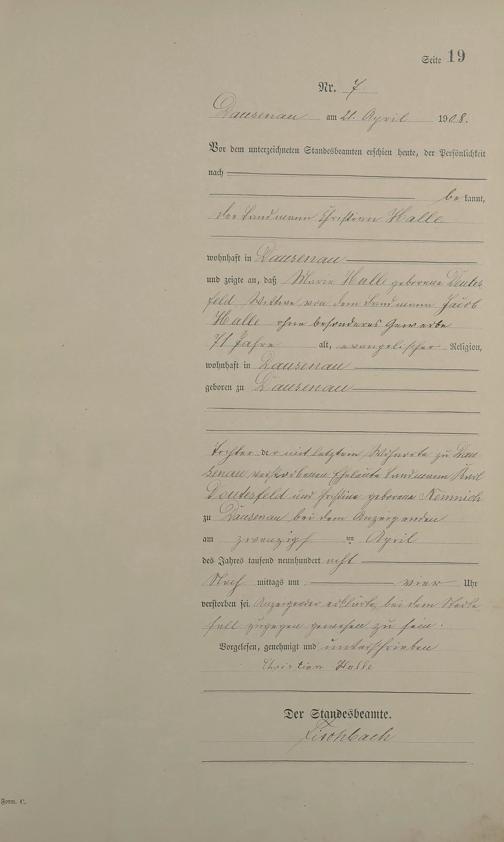 Seite 19
Nr. 7
Dausenau am 21. April 1908.
Vor dem unterzeichneten Standesbeamten erschien heute, der Persönlichkeit
nach
be kannt,
der Landmann Christian Halle
wohnhaft in Dausenau
und zeigte an, daß Maria Halle geborene Deuter
feld Witwe von dem Landmann Jacob
Halle ohne besonderes Gewerbe
71 Jahre alt, evangelischer Religion,
wohnhaft in Dausenau
geboren zu Dausenau
Tochter der mit letztem Wohnorte zu Dau
senau verstorbenen Eheleute Landmann Karl
Deuterfeld und Christine geborene Nemnich
zu Dausenau bei dem Anzeigenden
am zwanzigsten April
des Jahres tausend neunhundert acht
Nach mittags um vier Uhr
verstorben sei. Anzeigender erklärte, bei dem Sterbe
fall zugegen gewesen zu sein.
Vorgelesen, genehmigt und unterschrieben
Christian Halle
Der Standesbeamte.
Fischbach
Form. C.